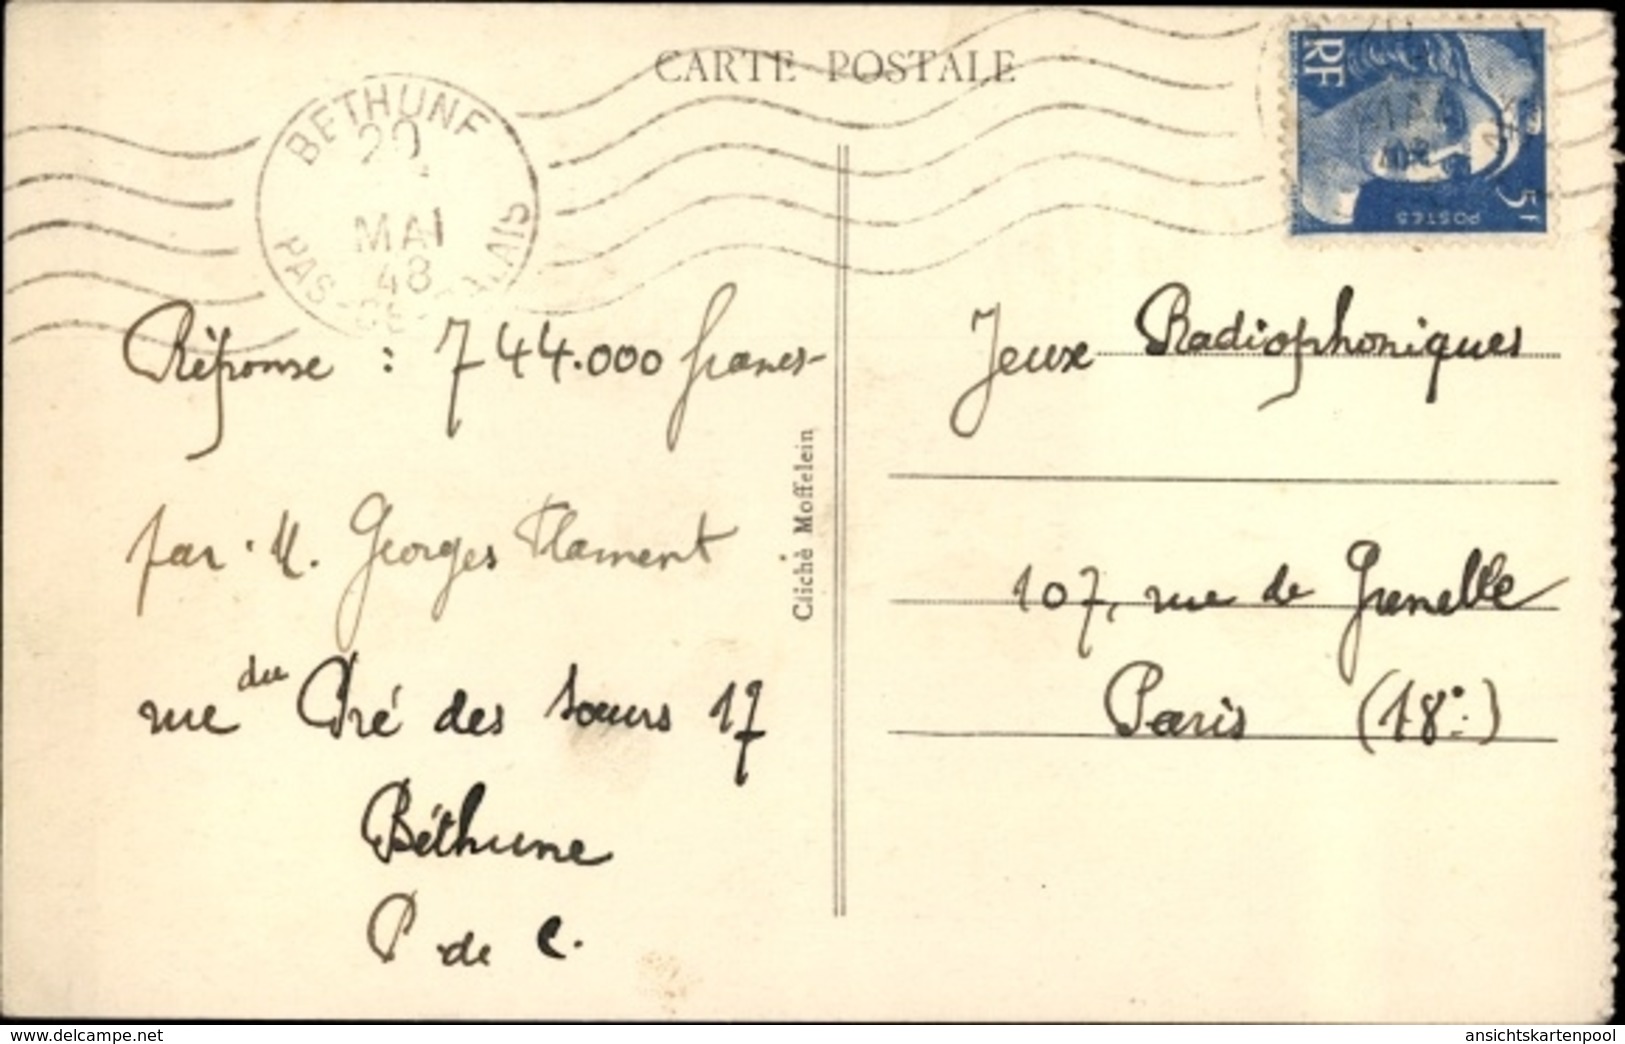 CARTE POSTALE
BETHUNE
20
MAI
48
PAS-DE-CALAIS
RF
5F
POSTES
Réponse : 744.000 francs-
par M. Georges Flament
rue du Pré des Sœurs 17
Béthune
P. de C.
Cliché Moffelein
Jeux Radiophoniques
107, rue de Grenelle
Paris (18e)
https://www.delcampe.net
ansichtskartenpool